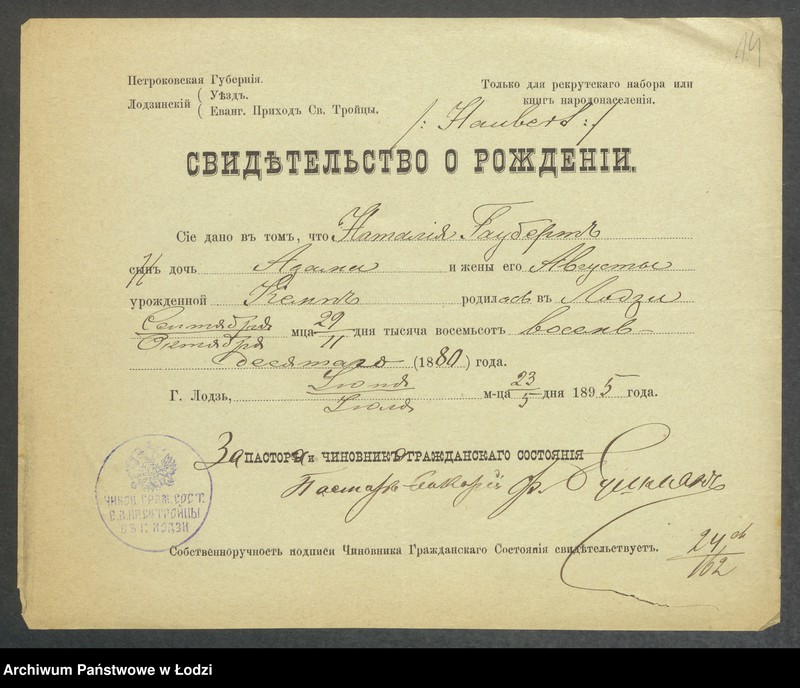 14
Петроковская Губернія.
Лодзинскій { Уѣздъ.
Еванг. Приходъ Св. Тройцы.
Только для рекрутскаго набора или
книгъ народонаселенія.
/: Haubert :/
СВИДѢТЕЛЬСТВО О РОЖДЕНІИ.
Сіе дано въ томъ, что Наталія Гаубертъ
сынъ дочь Адама и жены его Августы
урожденной родилась въ Лодзи
Сентября / Октября мца 29/11 дня тысяча восемьсотъ восемь-
десятаго (1880) года.
Г. Лодзь, Іюня / Іюля м-ца 23/5 дня 1895 года.
За ПАСТОРА и ЧИНОВНИКА ГРАЖДАНСКАГО СОСТОЯНІЯ
Пасторъ
ЧИНОВ. ГРАЖ. СОСТ.
ВЪ Г. ЛОДЗИ
Собственноручность подписи Чиновника Гражданскаго Состоянія свидѣтельствуетъ.
Archiwum Państwowe w Łodzi